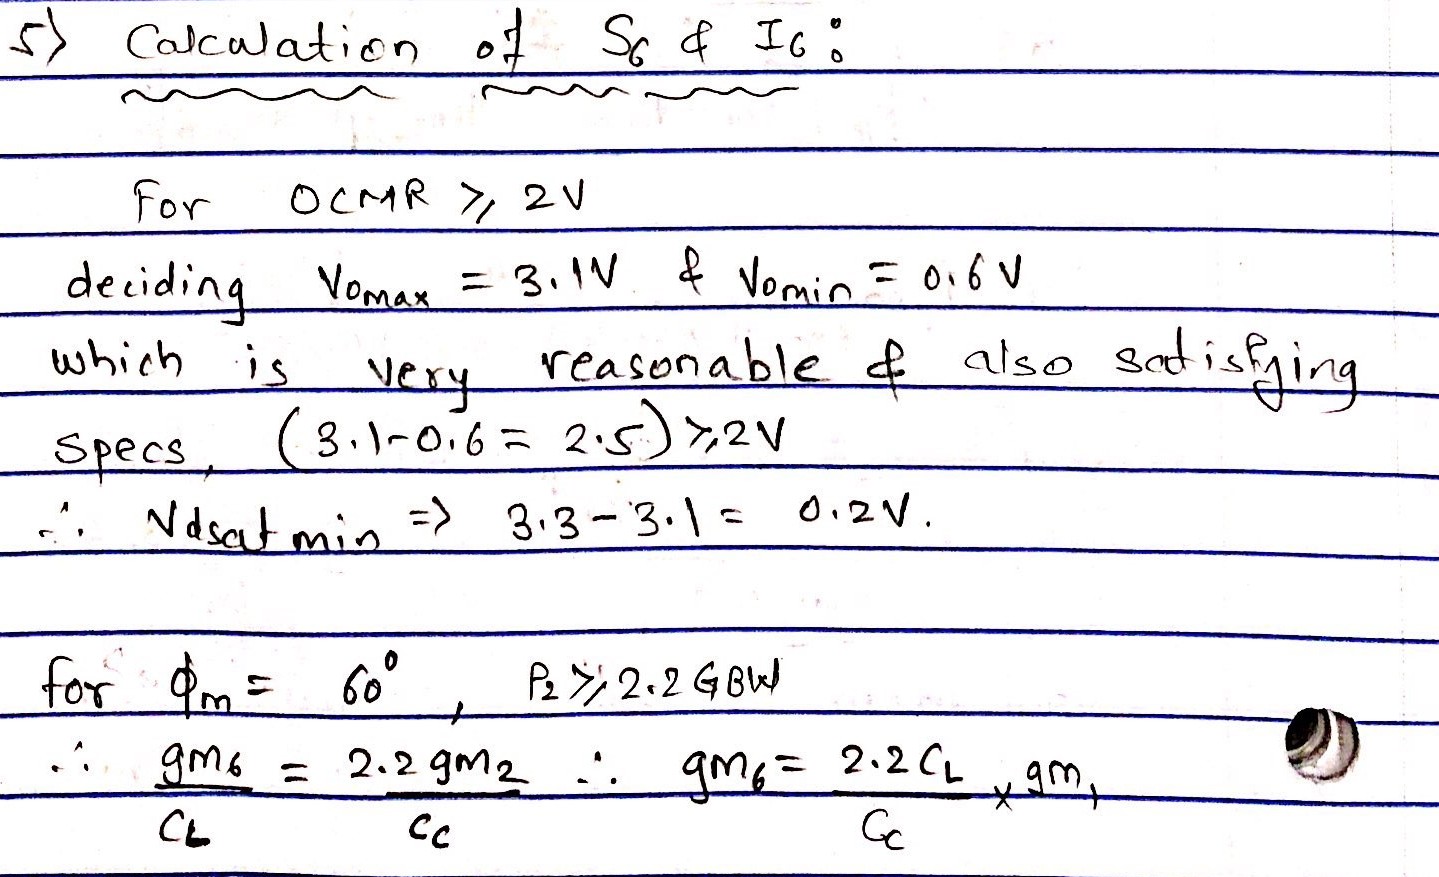 5) Calculation of S6 & I6:
For OCMR ⩾ 2V
deciding Vomax = 3.1V & Vomin = 0.6V
which is very reasonable & also satisfying
specs, (3.1-0.6 = 2.5) ⩾ 2V
∴ Vdsat min => 3.3-3.1 = 0.2V.
for ϕm = 60°, P2 ⩾ 2.2 GBW
∴ gm6/CL = 2.2gm2/Cc ∴ gm6 = 2.2CL/Cc × gm1